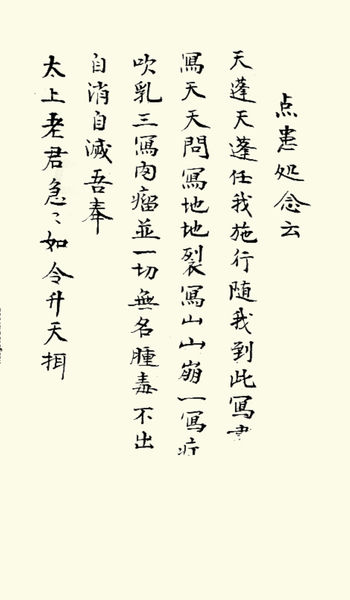 点患处念云
天蓬天蓬任我施行随我到此寫
寫天天問寫地地裂寫山山崩一寫
吹乳三寫肉瘤並一切無名腫毒不出
自消自滅吾奉
太上老君急〻如令升天